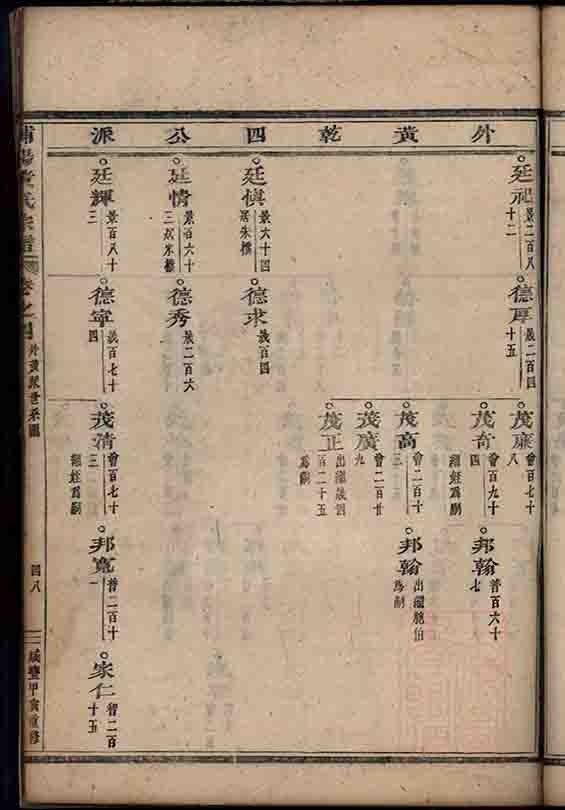 外黃乾四公派
廷祀 景二百八十二
德厚 歲二百四十五
茂廉 會百七十八
茂奇 會百九十四 繼姪爲嗣
邦翰 普百六十七
茂高 會二百十三
邦翰 出繼胞伯爲嗣
茂廣 會二百廿九
茂正 出繼歲百二十五爲嗣
廷慎 景六十四 居朱橋
德求 歲百四
廷情 景百六十三 水橋
德秀 歲二百六
廷輝 景百八十三
德寧 歲百七十四
茂倩 會百七十三 繼姪爲嗣
邦寬 普二百十一
家仁 智二百十五
浦陽黃氏宗譜
卷之四
外黃派世系圖
四八
咸豐甲寅重修